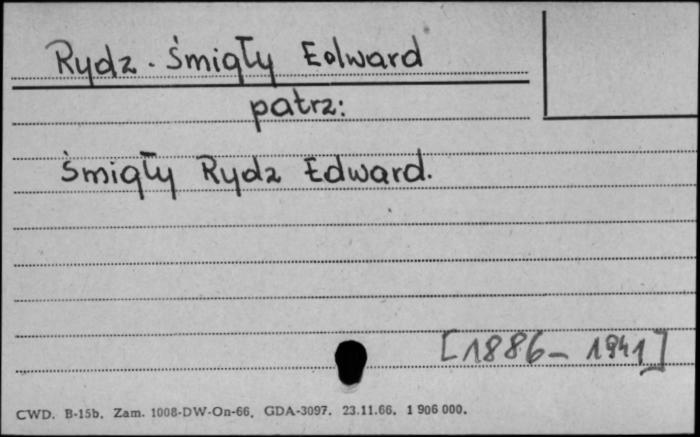 Rydz-Śmigły Edward
patrz:
Śmigły Rydz Edward.
[1886-1941]
CWD. B-15b. Zam. 1008-DW-On-66. GDA-3097. 23.11.66. 1 906 000.